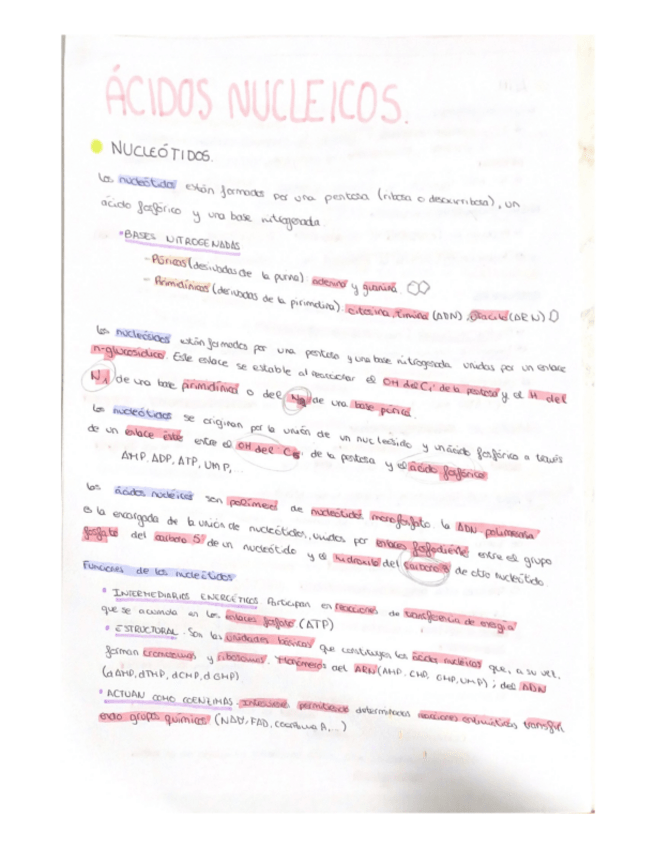 ÁCIDOS NUCLEICOS.
NUCLEÓTIDOS.
Los nucleótidos están formados por una pentosa (ribosa o desoxirribosa), un
ácido fosfórico y una base nitrogenada.
BASES NITROGENADAS
- Púricas (derivadas de la purina) adenina y guanina.
- Pirimidínicas (derivadas de la pirimidina) citosina, timina (ADN), uracilo (ARN)
Los nucleósidos están formados por una pentosa y una base nitrogenada unidas por un enlace
n-glucosídico. Este enlace se establece al reaccionar el OH del C1' de la pentosa y el H del
N1 de una base pirimidínica o del N9 de una base púrica.
Los nucleótidos se originan por la unión de un nucleósido y un ácido fosfórico a través
de un enlace éster entre el OH del C5' de la pentosa y el ácido fosfórico
AMP, ADP, ATP, UMP,...
Los ácidos nucleicos son polímeros de nucleótidos monofosfato. La ADN polimerasa
es la encargada de la unión de nucleótidos, unidos por enlaces fosfodiéster entre el grupo
fosfato del carbono 5' de un nucleótido y el hidroxilo del carbono 3' de otro nucleótido.
Funciones de los nucleótidos
INTERMEDIARIOS ENERGÉTICOS Participan en reacciones de transferencia de energía
que se acumula en los enlaces fosfato (ATP)
ESTRUCTURAL. Son las unidades básicas que constituyen los ácidos nucleicos que, a su vez,
forman cromosomas y ribosomas. Monómeros del ARN (AMP, CMP, GMP, UMP); del ADN
(dAMP, dTMP, dCMP, dGMP)
ACTUAN COMO COENZIMAS. permitiendo determinadas reacciones enzimáticas, transfiri
endo grupos químicos (NAD, FAD, coenzima A,...)